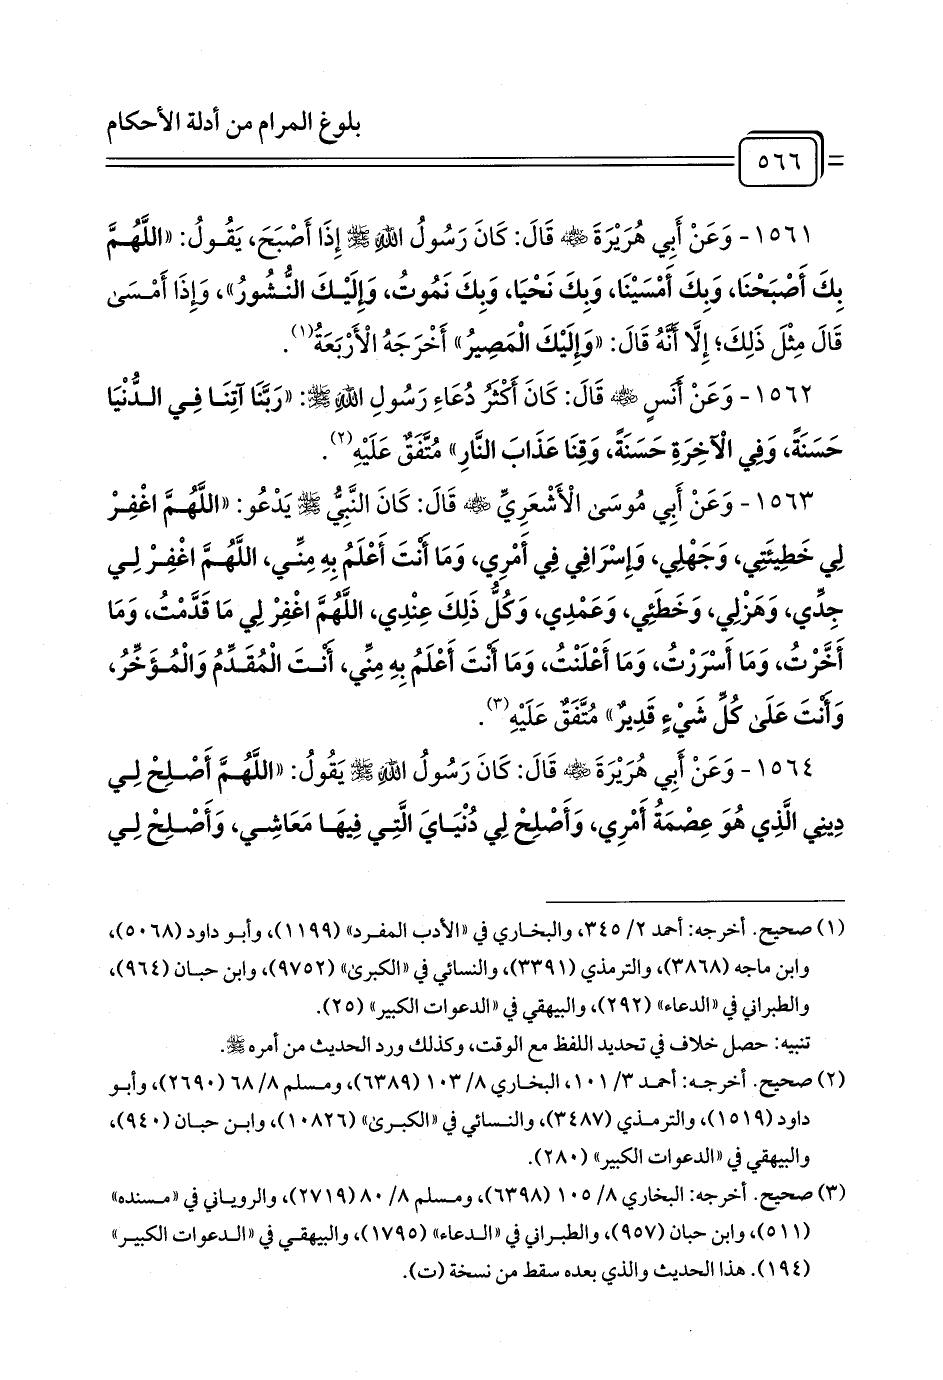 بلوغ المرام من أدلة الأحكام
٥٦٦
١٥٦١- وَعَنْ أَبِي هُرَيْرَةَ ﵁ قَالَ: كَانَ رَسُولُ اللهِ ﷺ إِذَا أَصْبَحَ، يَقُولُ: «اللَّهُمَّ
بِكَ أَصْبَحْنَا، وَبِكَ أَمْسَيْنَا، وَبِكَ نَحْيَا، وَبِكَ نَمُوتُ، وَإِلَيْكَ النُّشُورُ»، وَإِذَا أَمْسَىٰ
قَالَ مِثْلَ ذَلِكَ؛ إِلَّا أَنَّهُ قَالَ: «وَإِلَيْكَ الْمَصِيرُ» أَخْرَجَهُ الْأَرْبَعَةُ(١).
١٥٦٢- وَعَنْ أَنَسٍ ﵁ قَالَ: كَانَ أَكْثَرُ دُعَاءِ رَسُولِ اللهِ ﷺ: «رَبَّنَا آتِنَا فِي الدُّنْيَا
حَسَنَةً، وَفِي الْآخِرَةِ حَسَنَةً، وَقِنَا عَذَابَ النَّارِ» مُتَّفَقٌ عَلَيْهِ(٢).
١٥٦٣- وَعَنْ أَبِي مُوسَىٰ الْأَشْعَرِيِّ ﵁ قَالَ: كَانَ النَّبِيُّ ﷺ يَدْعُو: «اللَّهُمَّ اغْفِرْ
لِي خَطِيئَتِي، وَجَهْلِي، وَإِسْرَافِي فِي أَمْرِي، وَمَا أَنْتَ أَعْلَمُ بِهِ مِنِّي، اللَّهُمَّ اغْفِرْ لِي
جِدِّي، وَهَزْلِي، وَخَطَئِي، وَعَمْدِي، وَكُلُّ ذَلِكَ عِنْدِي، اللَّهُمَّ اغْفِرْ لِي مَا قَدَّمْتُ، وَمَا
أَخَّرْتُ، وَمَا أَسْرَرْتُ، وَمَا أَعْلَنْتُ، وَمَا أَنْتَ أَعْلَمُ بِهِ مِنِّي، أَنْتَ الْمُقَدِّمُ وَالْمُؤَخِّرُ،
وَأَنْتَ عَلَىٰ كُلِّ شَيْءٍ قَدِيرٌ» مُتَّفَقٌ عَلَيْهِ(٣).
١٥٦٤- وَعَنْ أَبِي هُرَيْرَةَ ﵁ قَالَ: كَانَ رَسُولُ اللهِ ﷺ يَقُولُ: «اللَّهُمَّ أَصْلِحْ لِي
دِينِي الَّذِي هُوَ عِصْمَةُ أَمْرِي، وَأَصْلِحْ لِي دُنْيَايَ الَّتِي فِيهَا مَعَاشِي، وَأَصْلِحْ لِي
(١) صحيح. أخرجه: أحمد ٢/ ٣٤٥، والبخاري في «الأدب المفرد» (١١٩٩)، وأبو داود (٥٠٦٨)،
وابن ماجه (٣٨٦٨)، والترمذي (٣٣٩١)، والنسائي في «الكبرىٰ» (٩٧٥٢)، وابن حبان (٩٦٤)،
والطبراني في «الدعاء» (٢٩٢)، والبيهقي في «الدعوات الكبير» (٢٥).
تنبيه: حصل خلاف في تحديد اللفظ مع الوقت، وكذلك ورد الحديث من أمره ﷺ.
(٢) صحيح. أخرجه: أحمد ٣/ ١٠١، البخاري ٨/ ١٠٣ (٦٣٨٩)، ومسلم ٨/ ٦٨ (٢٦٩٠)، وأبو
داود (١٥١٩)، والترمذي (٣٤٨٧)، والنسائي في «الكبرىٰ» (١٠٨٢٦)، وابن حبان (٩٤٠)،
والبيهقي في «الدعوات الكبير» (٢٨٠).
(٣) صحيح. أخرجه: البخاري ٨/ ١٠٥ (٦٣٩٨)، ومسلم ٨/ ٨٠ (٢٧١٩)، والروياني في «مسنده»
(٥١١)، وابن حبان (٩٥٧)، والطبراني في «الدعاء» (١٧٩٥)، والبيهقي في «الدعوات الكبير»
(١٩٤). هذا الحديث والذي بعده سقط من نسخة (ت).